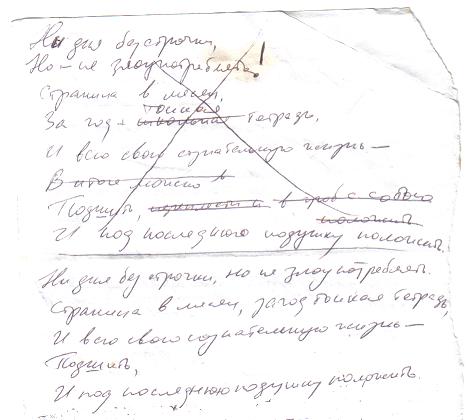 Ни дня без строчки,
Но – не злоупотреблять!
Страница в месяц,
тонкая
За год – школьная тетрадь,
И всю свою сознательную жизнь –
В итоге можно в
Подшить, и в гроб с собою
положить
И под последнюю подушку положить.
Ни дня без строчки, но не злоупотреблять.
Страница в месяц, за год тонкая тетрадь,
И всю свою сознательную жизнь –
Подшить,
И под последнюю подушку положить.